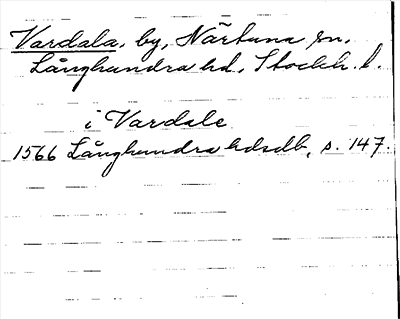 Vardala, by, Närtuna sn.
Långhundra hd., Stockh. l.
i Vardale
1566 Långhundra hdsdb, s. 147.